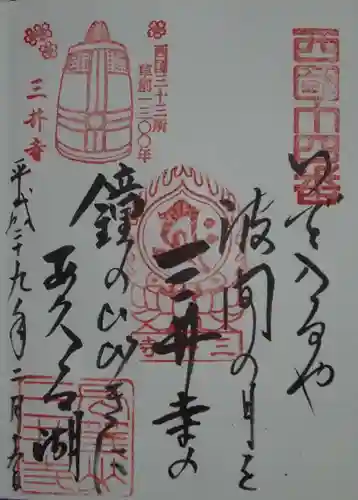 西國十四番
いで入るや
波間の月を
三井寺の
鐘のひびきに
あくる湖
西國三十三所
草創一三〇〇年
三井寺
三井寺
平成二十九年二月